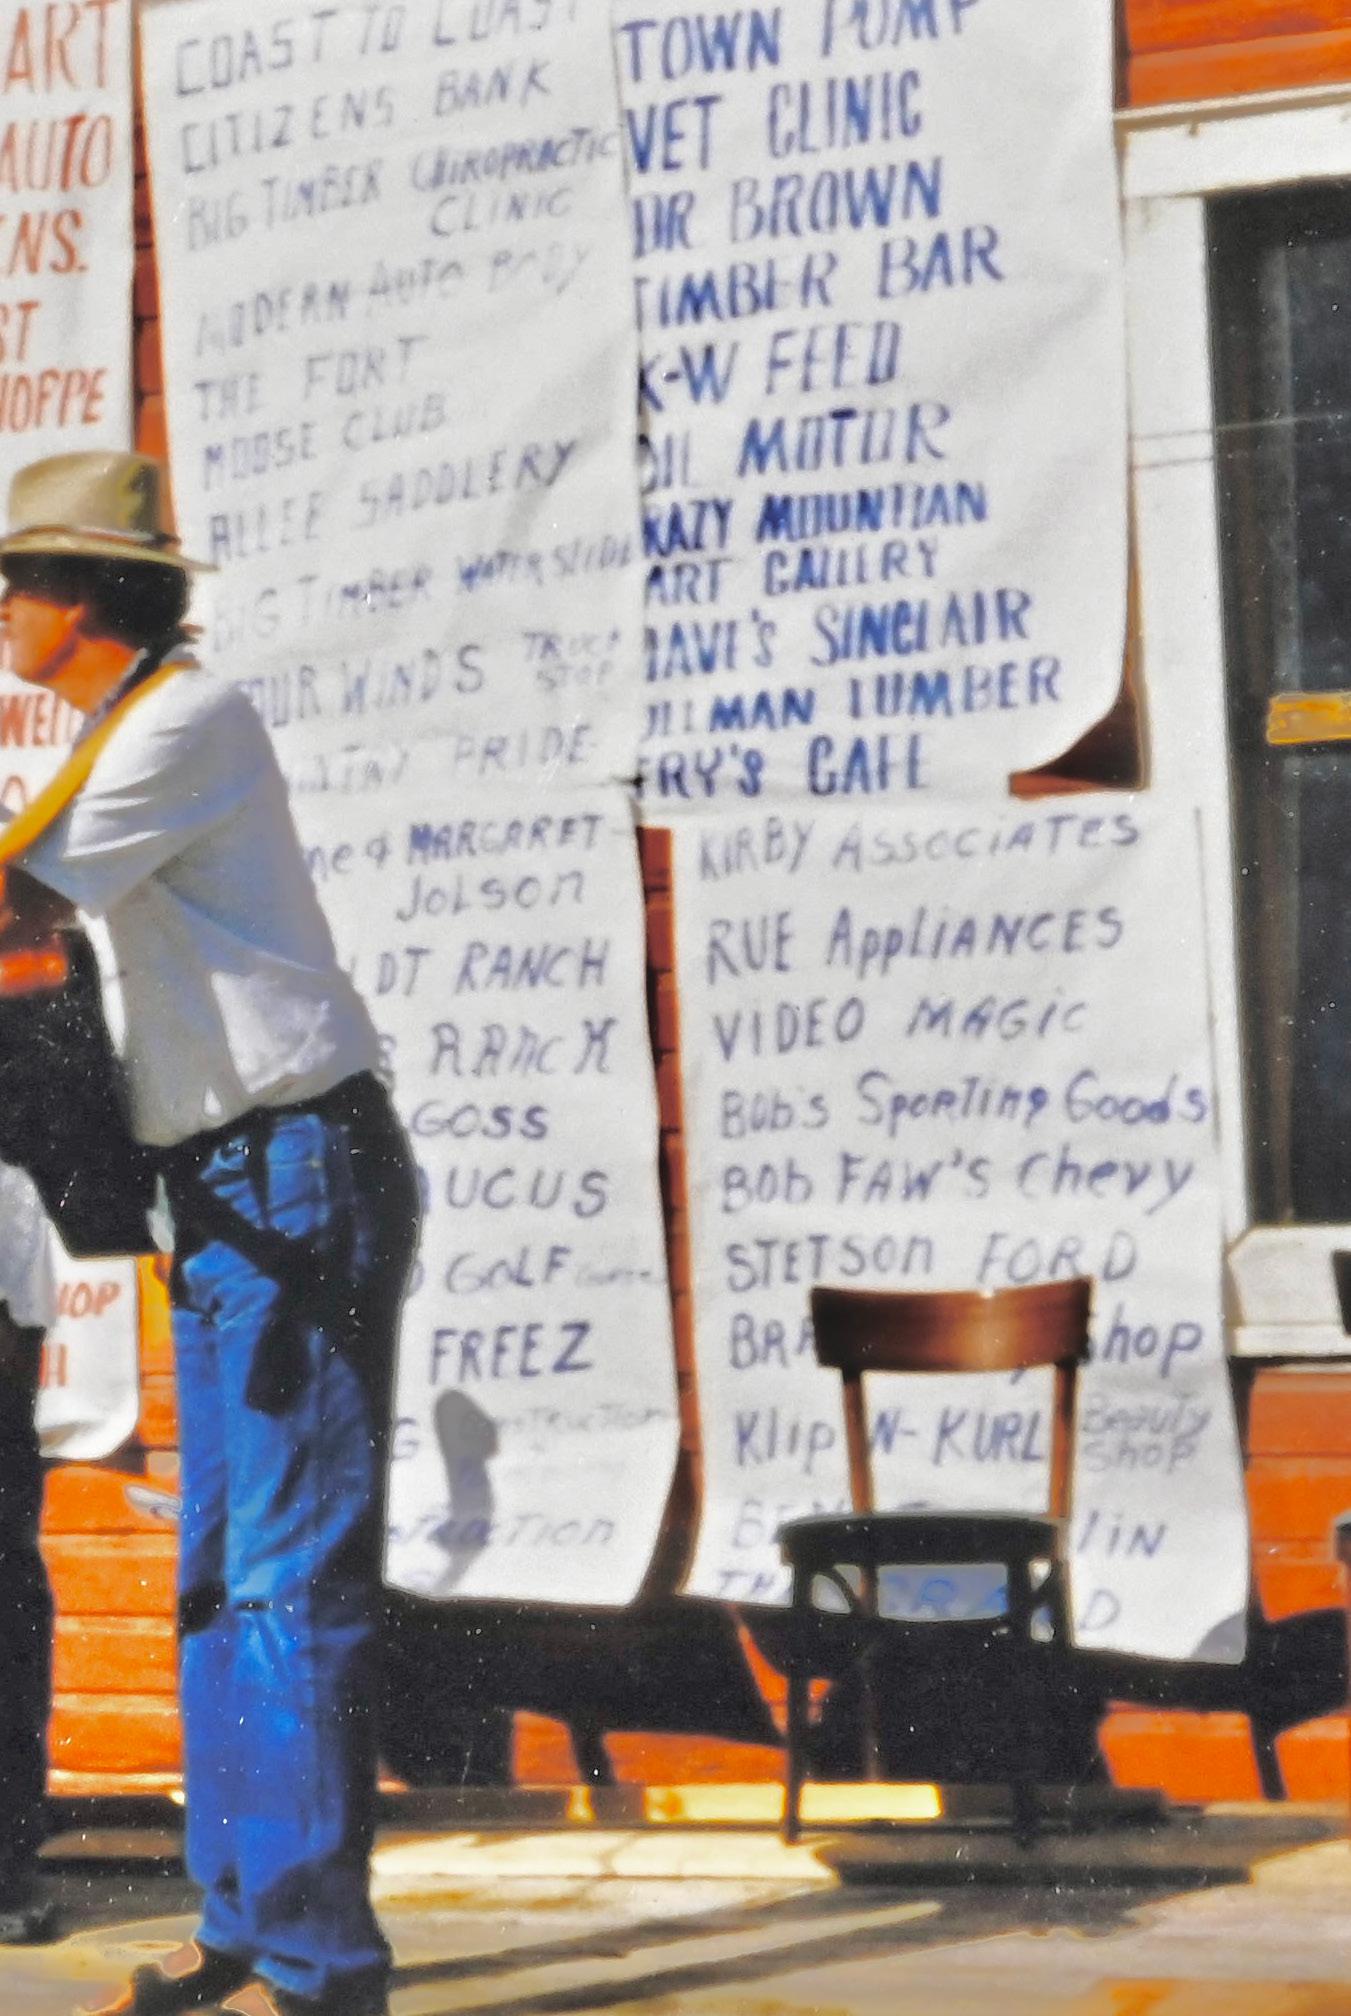 ART
AUTO
ENS.
ST
HOFPE
WELL
HOP
H
COAST TO COAST
CITIZENS BANK
BIG TIMBER CHIROPRACTIC
CLINIC
MODERN AUTO BODY
THE FORT
MOOSE CLUB
ALLEE SADDLERY
BIG TIMBER WATERSLIDE
OUR WINDS TRUCK
STOP
PRIDE
TOWN PUMP
VET CLINIC
DR BROWN
TIMBER BAR
K-W FEED
OIL MOTOR
RAZY MOUNTIAN
ART GALLERY
DAVE'S SINCLAIR
LLMAN LUMBER
ERY'S CAFE
ne & MARGARET
JOLSON
LDT RANCH
RANCH
GOSS
UCUS
GOLF
FREEZ
G CONSTRUCTION
TRUCTION
KIRBY ASSOCIATES
RUE AppLIANCES
VIDEO MAGIC
BOb's Sporting Goods
BOb FAW'S Chevy
STETSON FORD
BRA Shop
Klip N- KURL Beauty
Shop
BE lIN
TH D